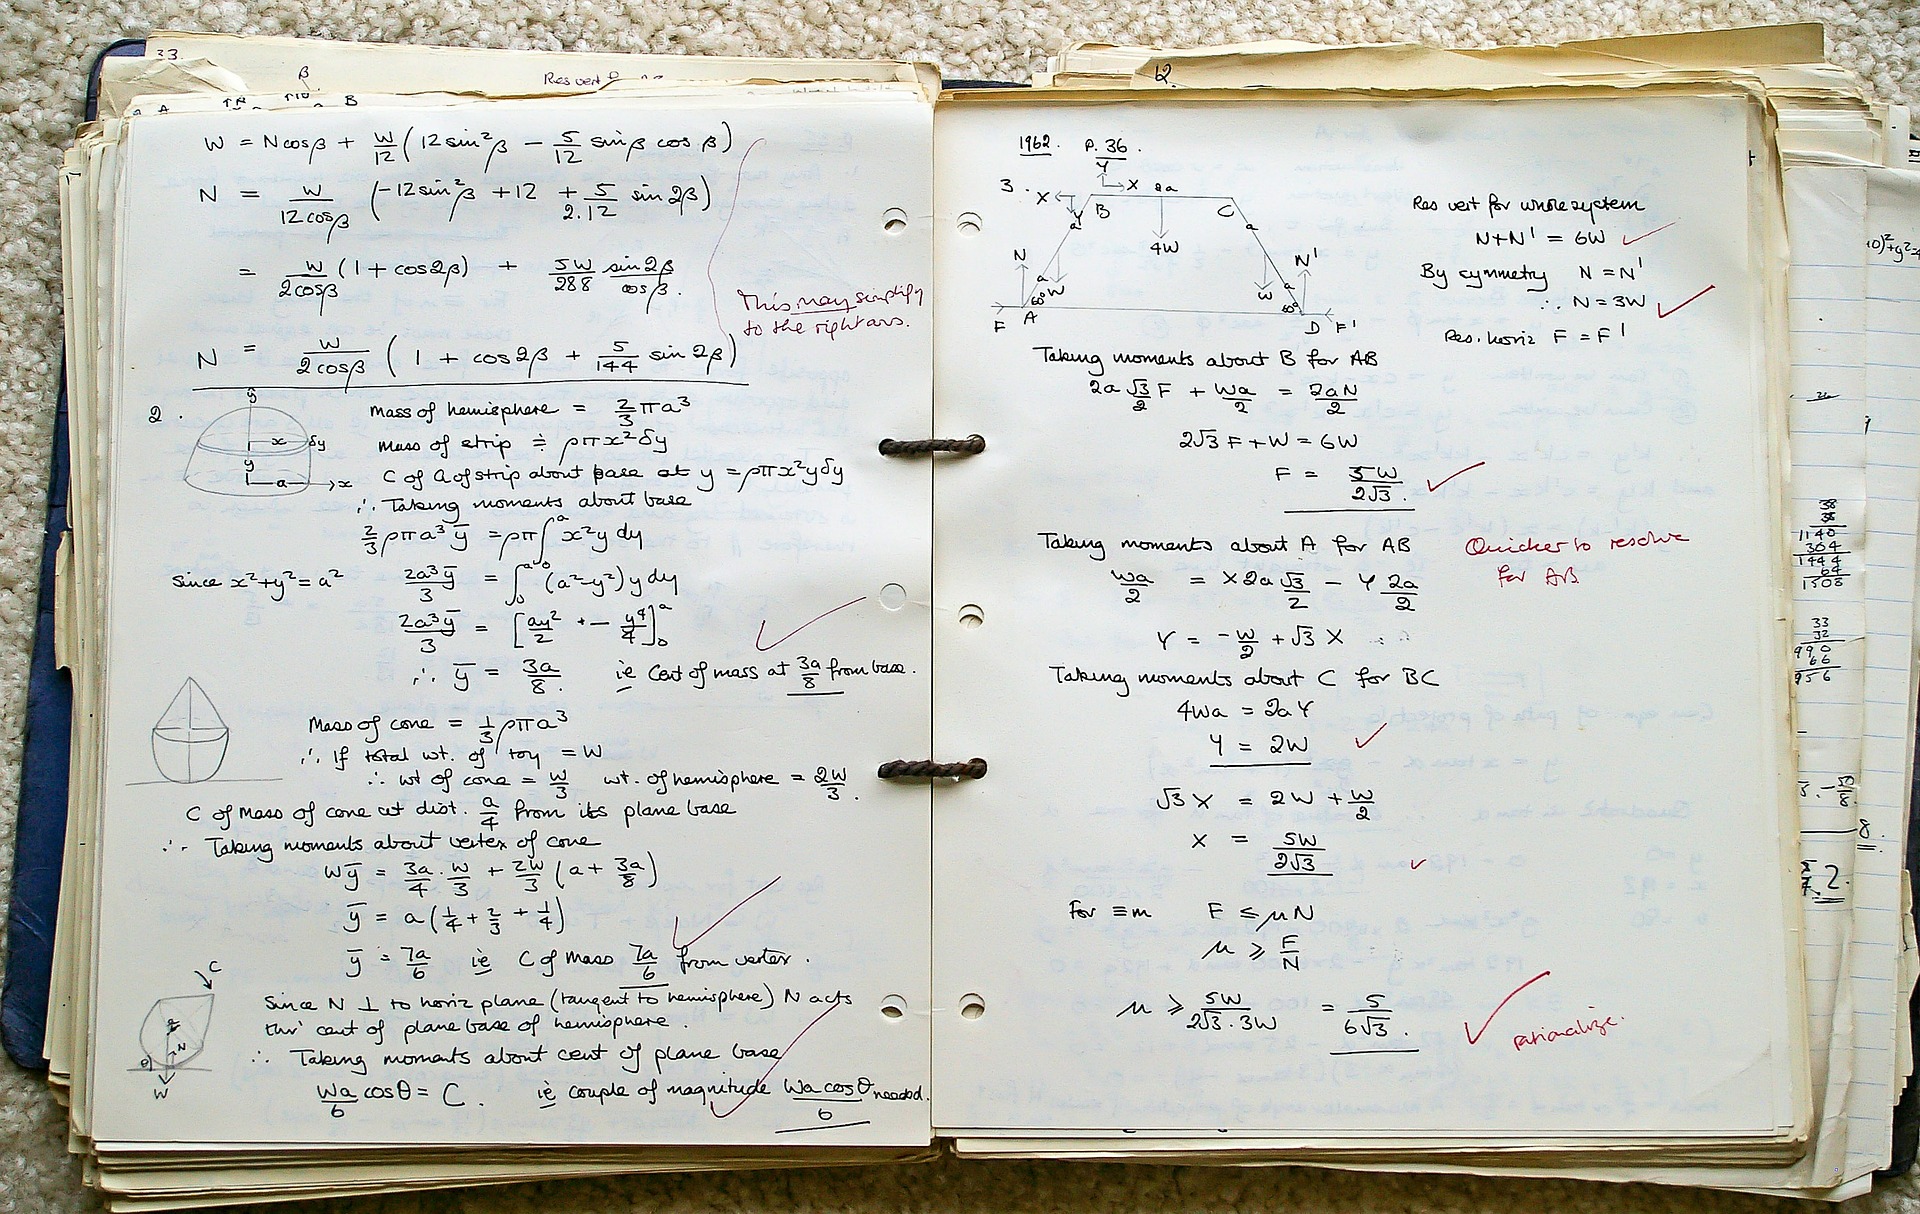 33.
β
Res vert
A
B
W = N cosβ + W/12 (12 sin²β − 5/12 sinβ cos β)
N = W/12cosβ (−12 sin²β + 12 + 5/2.12 sin 2β)
= W/2cosβ (1 + cos2β) + 5W/288 sin2β/cosβ.
This may simplify
to the right ans.
N = W/2cosβ (1 + cos 2β + 5/144 sin 2β)
2.
y
x
δy
y
a
x
Mass of hemisphere = 2/3 πa³
Mass of strip ≑ ρπx²δy
C of G of strip about base at y = ρπx²yδy
∴ Taking moments about base
2/3 ρπa³ȳ = ρπ∫ᵃ₀ x²y dy
Since x²+y²=a² 2a³ȳ/3 = ∫ᵃ₀ (a²−y²) y dy
2a³ȳ/3 = [ay²/2 − y⁴/4]ᵃ₀
∴ ȳ = 3a/8. ie Cent of mass at 3a/8 from base.
Mass of cone = 1/3 ρπa³
∴ If total wt. of toy = W
∴ wt of cone = W/3 wt. of hemisphere = 2W/3.
C of Mass of cone at dist. a/4 from its plane base
∴ Taking moments about vertex of cone
Wȳ = 3a/4 . W/3 + 2W/3 (a + 3a/8)
ȳ = a(1/4 + 2/3 + 1/4)
ȳ = 7a/6 ie C of Mass 7a/6 from vertex.
C
θ
N
W
Since N ⊥ to horiz plane (tangent to hemisphere) N acts
thr' cent of plane base of hemisphere.
∴ Taking moments about cent of plane base
Wa/6 cosθ = C. ie couple of magnitude Wa cosθ/6 needed.
12
1962. P. 36.
3.
Y
X
X
2a
Y
B
C
a
a
4W
N
N'
a
W
W
a
60°
60°
F
A
D
F'
Res vert for whole system
N+N' = 6W
By symmetry N = N'
∴ N = 3W
Res. horiz F = F'
Taking moments about B for AB
2a √3/2 F + Wa/2 = 2aN/2
2√3 F + W = 6W
F = 5W/2√3.
Taking moments about A for AB
Quicker to resolve
for AB
Wa/2 = X 2a √3/2 − Y 2a/2
Y = −W/2 + √3 X
Taking moments about C for BC
4Wa = 2aY
Y = 2W
√3 X = 2W + W/2
X = 5W/2√3
For ≡m F ≤ μN
μ ⩾ F/N
μ ⩾ 5W/2√3 . 3W = 5/6√3.
rationalize.
38
38
1140
304
1444
64
1508
33
32
990
66
956
8.
2.